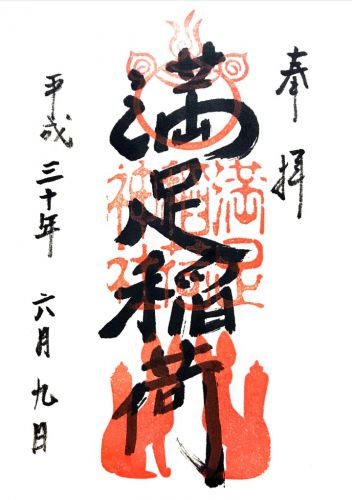 奉拝
満足稲荷
満足稲荷神社
平成三十年 六月九日